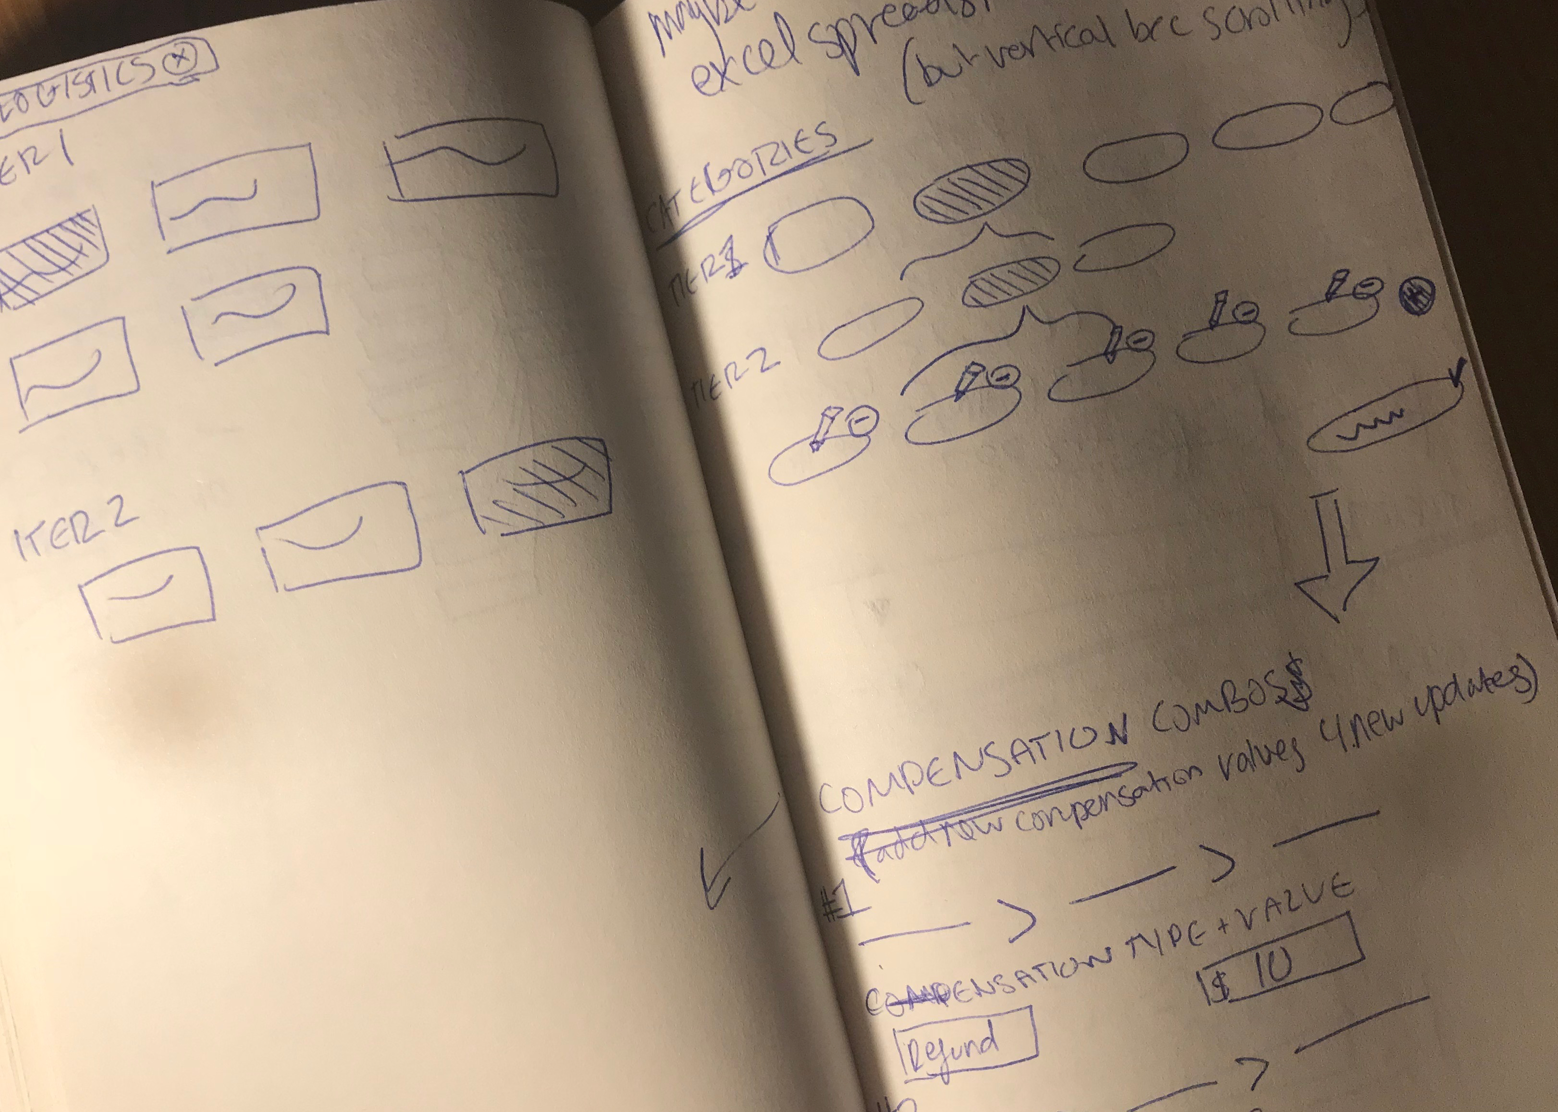 LOGISTICS ⓧ
TIER 1
TIER 2
maybe
excel spreads
(but vertical b/c scrolling)
CATEGORIES
TIER 1
TIER 2
COMPENSATION COMBOS
(add new compensation values 4 new updates)
#1
>
>
COMPENSATION TYPE + VALUE
Refund
$ 10
>